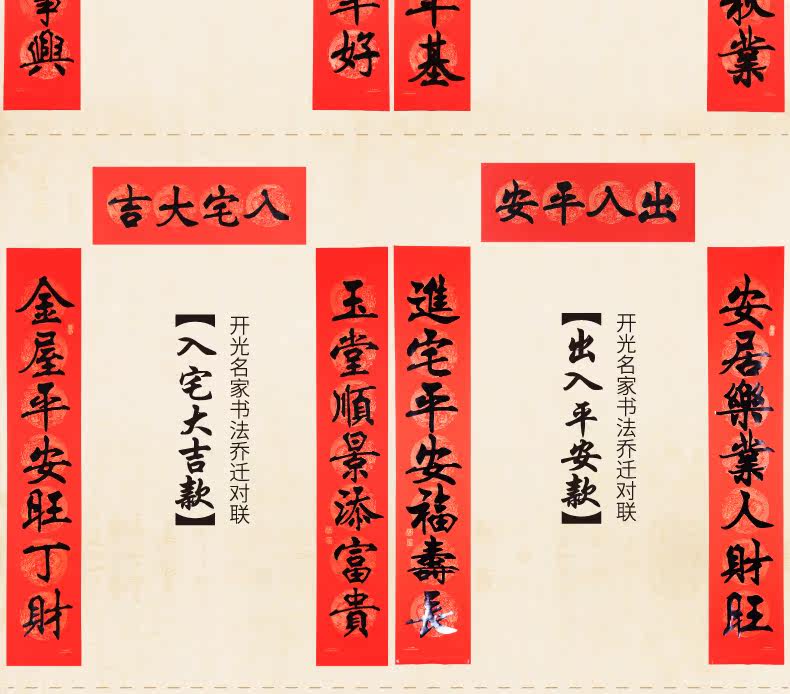 興
好
基
業
入宅大吉
玉堂順景添富貴
金屋平安旺丁財
开光名家书法乔迁对联
【入宅大吉款】
出入平安
安居樂業人財旺
進宅平安福壽長
开光名家书法乔迁对联
【出入平安款】